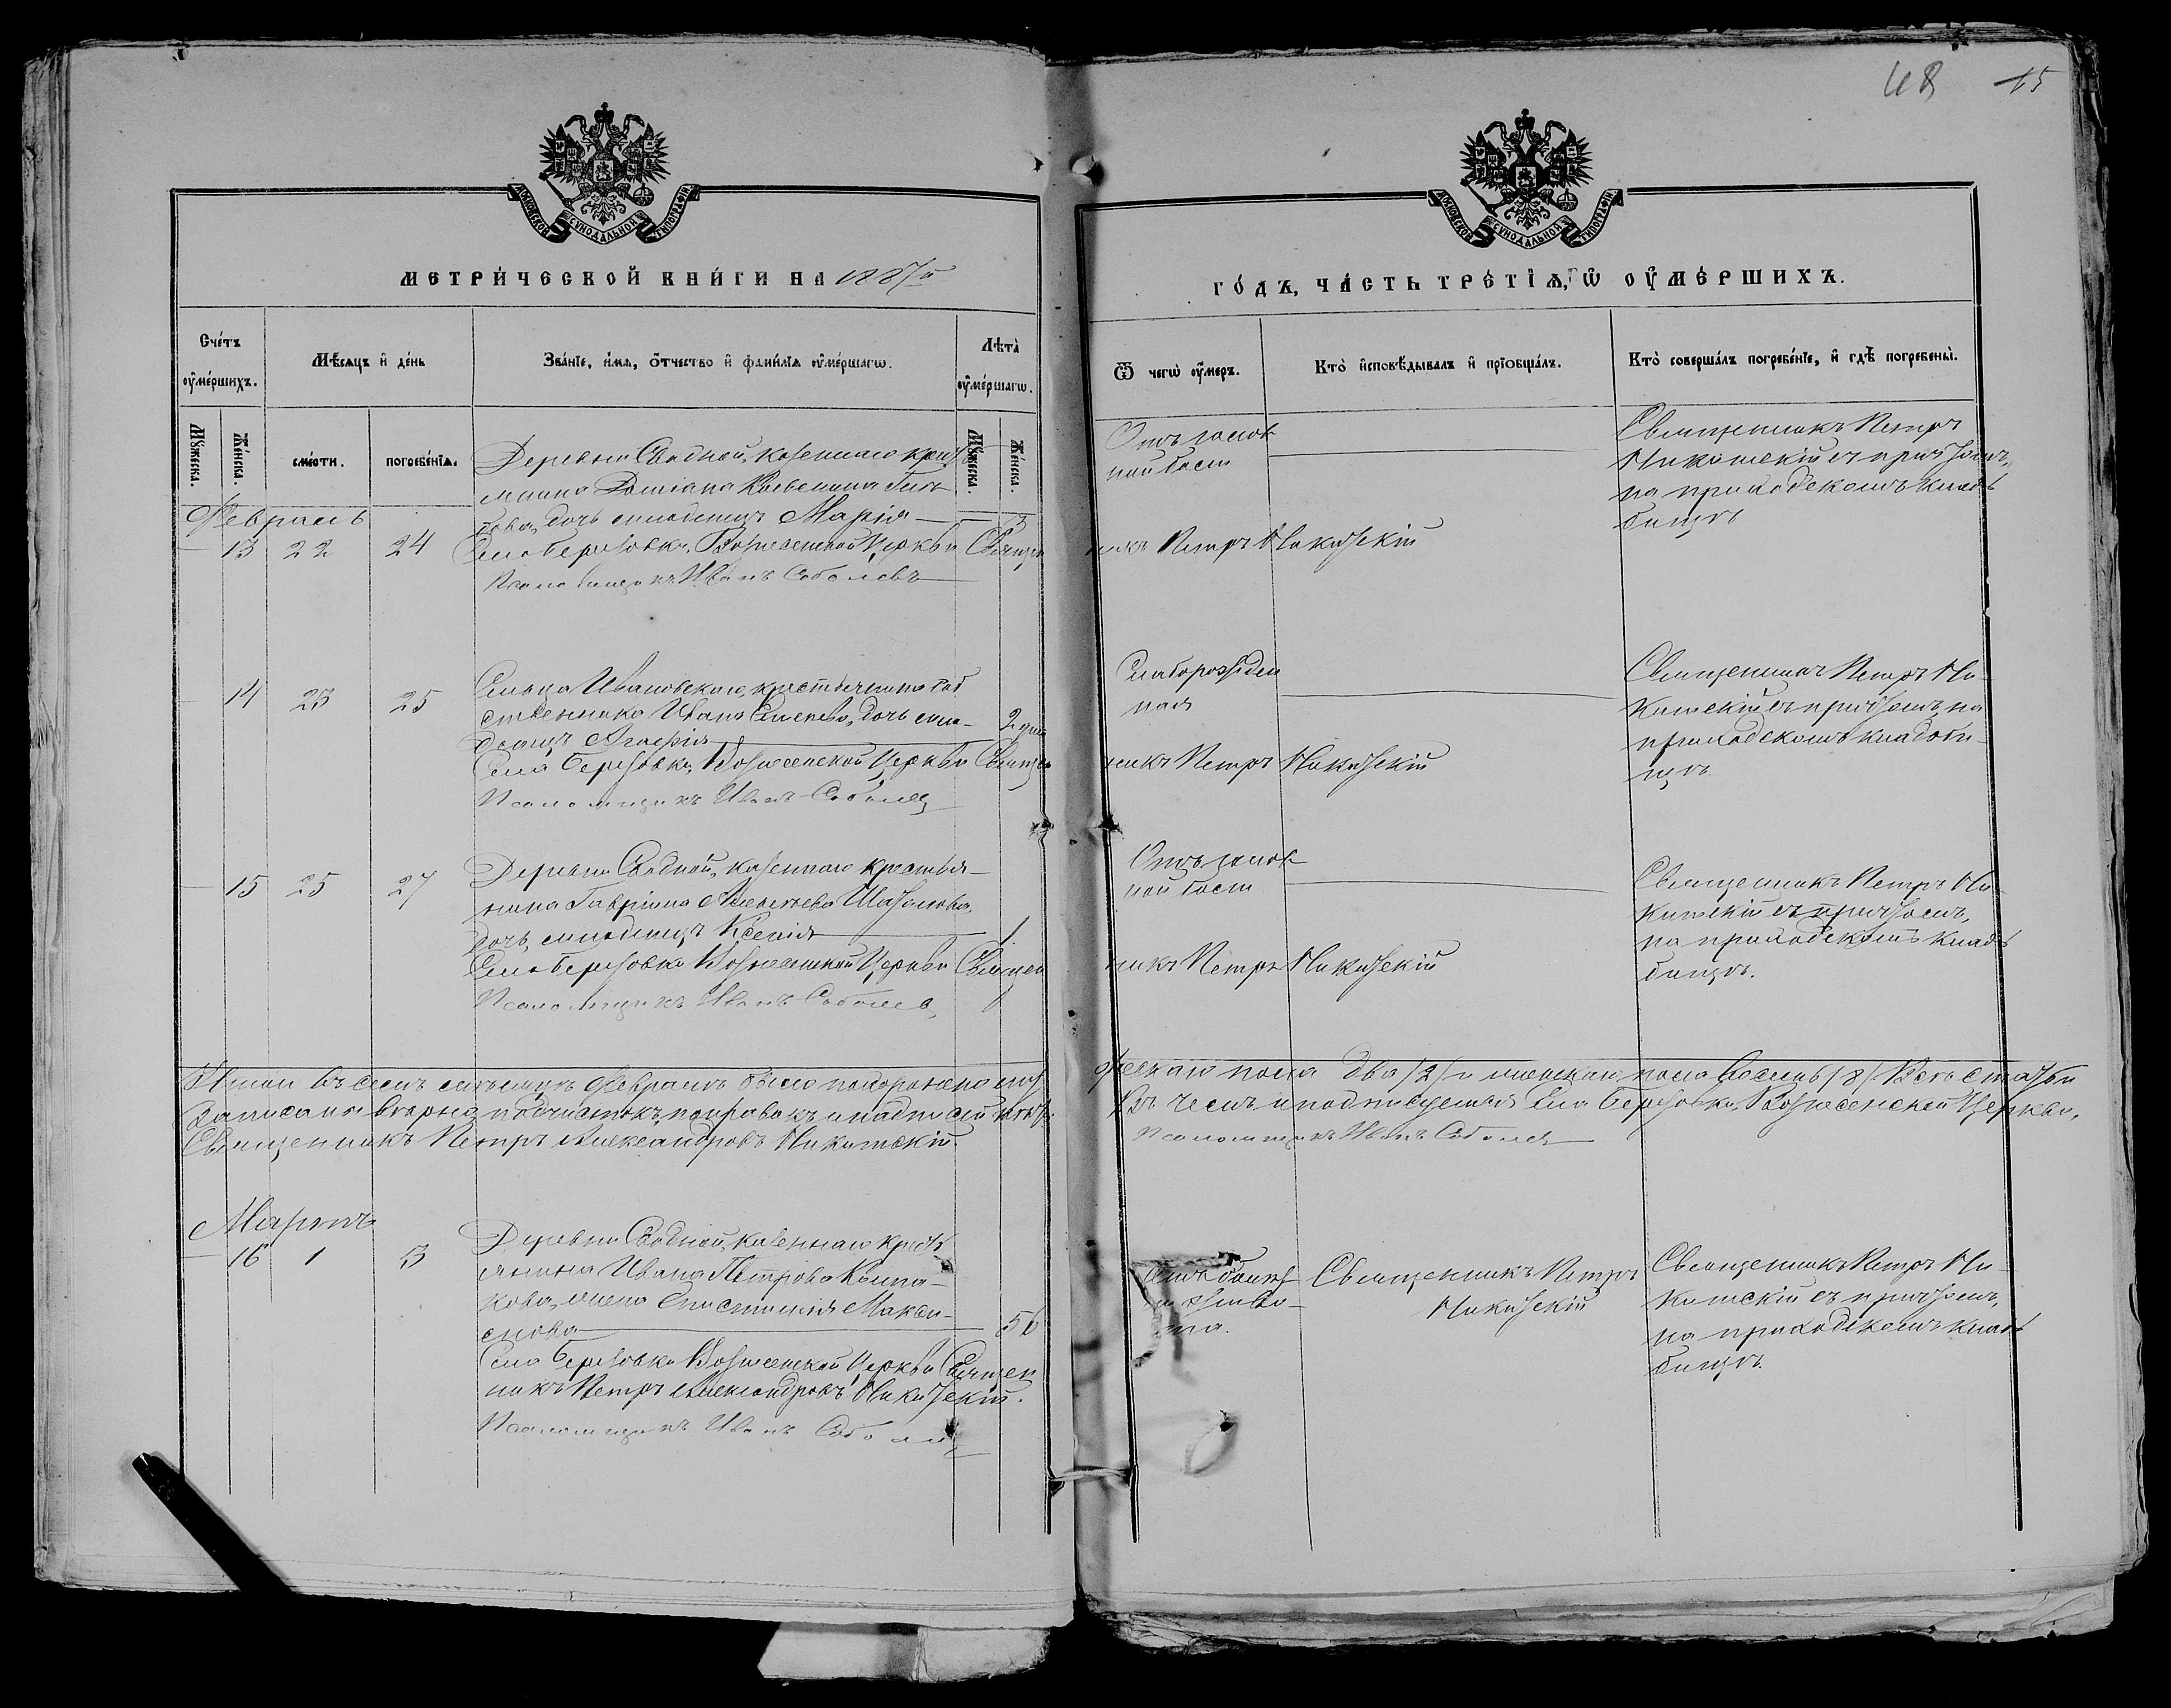 48 15
МОСКОВСКОЙ СѴНОДАЛЬНОЙ ТИПОГРАФІИ
МОСКОВСКОЙ СѴНОДАЛЬНОЙ ТИПОГРАФІИ
МЕТРИ́ЧЕСКОЙ КНИ́ГИ НА 1887й
ГО́ДЪ, ЧА́СТЬ ТРЕ́ТІѦ, Ѡ҆ ОУ҆МЕ́РШИХЪ.
Сче́тъ оу҆ме́ршихъ.
Мѣ́сѧцъ и҆ де́нь
Зва́нїе, и҆́мѧ, о҆́тчество и҆ фами́лїѧ оу҆ме́ршагѡ.
Лѣта̀ оу҆ме́ршагѡ.
Ѿ чегѡ̀ оу҆́меръ.
Кто̀ и҆сповѣ́дывалъ и҆ прїобща́лъ.
Кто̀ соверша́лъ погребе́нїе, и҆ гдѣ̀ погребены̀.
Мꙋ́жеска.
Же́нска.
сме́рти.
погребе́нїѧ.
Мꙋ́жеска.
Же́нска.
Февраль
13 22 24
Деревни Сводной, казеннаго крест
янина
дочь младенецъ Марія 3
Села Березовки Вознесенской Церкви Священ
никъ Петръ Никитскій
Псаломщикъ Иванъ Соболевъ
Отъ
Священникъ Петръ
Никитскій съ причтомъ,
на приходскомъ клад
бищѣ
14 23 25
Сельца Ивановскаго, крестьянина соб
ственника Ивана дочь мла-
денецъ Агафія 2 дня
Села Березовки, Вознесенской Церкви Священ
никъ Петръ Никитскій
Псаломщикъ Иванъ Соболев
Слаборожден
ная
Священникъ Петръ Ни-
китскій съ причтомъ, на
приходскомъ кладби-
щѣ.
15 25 27
Деревни Сводной, казеннаго крестья-
нина Гавріила Алексеева
дочь, младенецъ Ксенія 1
Села Березовки Вознесенской Церкви Священ
никъ Петръ Никитскій
Псаломщикъ Иванъ Соболев
Отъ
Священникъ Петръ Ни-
китскій съ причтомъ,
на приходскомъ клад
бищѣ.
Итого въ семъ месяцѣ Февралѣ было похоронено муж
ескаго пола два /2/ и женскаго пола восемь /8/. Всѣ статьи
записаны верно подчистокъ, поправокъ и надписей нѣтъ.
Въ чемъ и подписуемся Села Березовки, Вознесенской Церкви,
Священникъ Петръ Александровъ Никитскій.
Псаломщикъ Иванъ Соболев
Мартъ
16 1 3
Деревни Сводной, казеннаго крест
янина Ивана Петрова Колпа-
кова, жена Макси-
мова 56
Села Березовки Вознесенской Церкви Священ
никъ Петръ Александровъ Никитскій.
Псаломщикъ Иванъ Соболев
Отъ
живо-
та.
Священникъ Петръ
Никитскій
Священникъ Петръ Ни-
китскій съ причтомъ,
на приходскомъ клад
бищѣ.